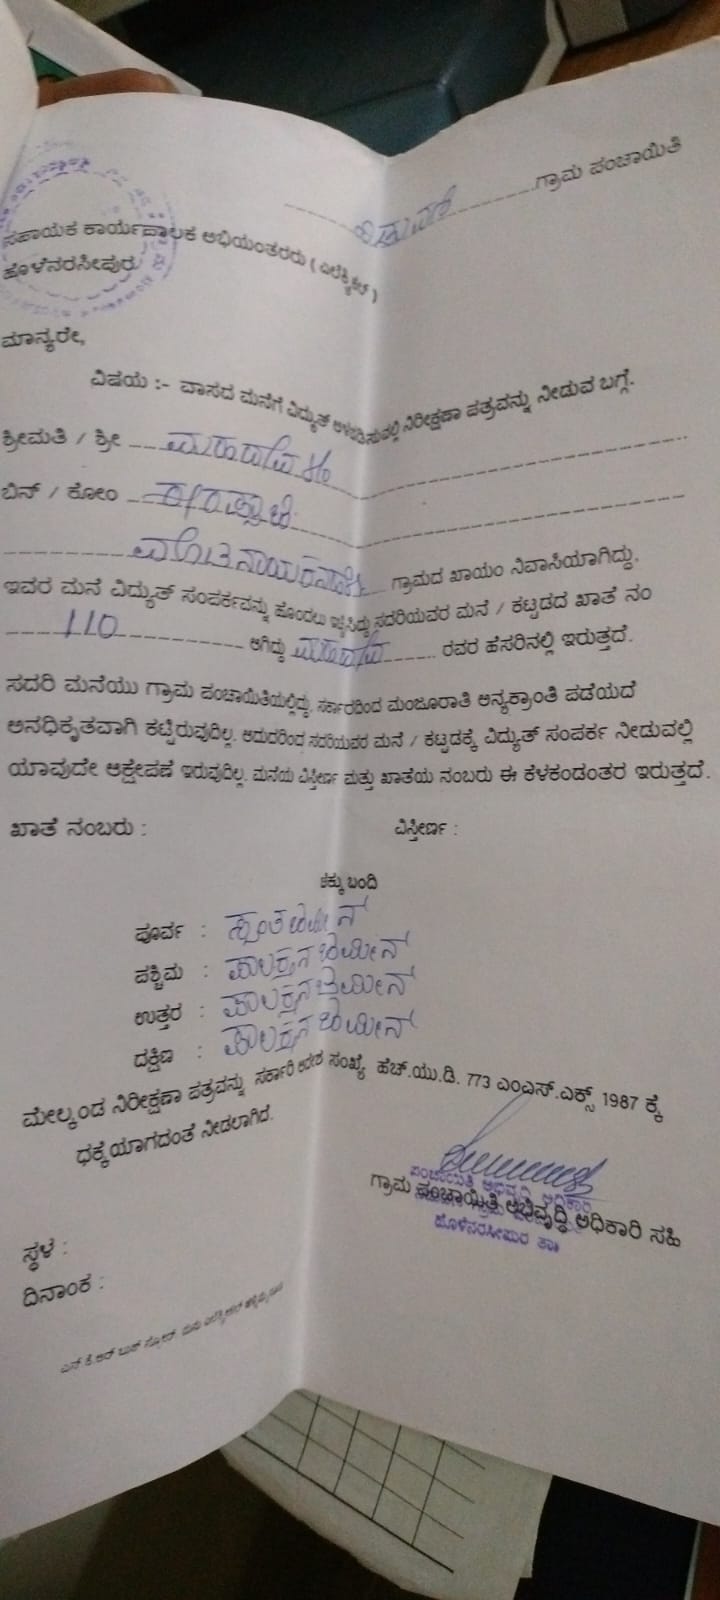 ಗ್ರಾಮ ಪಂಚಾಯಿತಿ
ಸಹಾಯಕ ಕಾರ್ಯಪಾಲಕ ಅಭಿಯಂತರರು ( ಎಲೆಕ್ಟ್ರಿಕಲ್ )
ಹೊಳೆನರಸೀಪುರ
ಮಾನ್ಯರೇ,
ವಿಷಯ :- ವಾಸದ ಮನೆಗೆ ವಿದ್ಯುತ್ ಅಳವಡಿಸುವಲ್ಲಿ ನಿರೀಕ್ಷಣಾ ಪತ್ರವನ್ನು ನೀಡುವ ಬಗ್ಗೆ.
ಶ್ರೀಮತಿ / ಶ್ರೀ
ಬಿನ್ / ಕೋಂ
ಗ್ರಾಮದ ಖಾಯಂ ನಿವಾಸಿಯಾಗಿದ್ದು,
ಇವರ ಮನೆ ವಿದ್ಯುತ್ ಸಂಪರ್ಕವನ್ನು ಹೊಂದಲು ಇಚ್ಛಿಸಿದ್ದು ಸದರಿಯವರ ಮನೆ / ಕಟ್ಟಡದ ಖಾತೆ ನಂ
110 ಆಗಿದ್ದು ರವರ ಹೆಸರಿನಲ್ಲಿ ಇರುತ್ತದೆ.
ಸದರಿ ಮನೆಯು ಗ್ರಾಮ ಪಂಚಾಯಿತಿಯಲ್ಲಿದ್ದು, ಸರ್ಕಾರದಿಂದ ಮಂಜೂರಾತಿ ಅನ್ಯಕ್ರಾಂತಿ ಪಡೆಯದೆ
ಅನಧಿಕೃತವಾಗಿ ಕಟ್ಟಿರುವುದಿಲ್ಲ. ಆದುದರಿಂದ ಸದರಿಯವರ ಮನೆ / ಕಟ್ಟಡಕ್ಕೆ ವಿದ್ಯುತ್ ಸಂಪರ್ಕ ನೀಡುವಲ್ಲಿ
ಯಾವುದೇ ಆಕ್ಷೇಪಣೆ ಇರುವುದಿಲ್ಲ. ಮನೆಯ ವಿಸ್ತೀರ್ಣ ಮತ್ತು ಖಾತೆಯ ನಂಬರು ಈ ಕೆಳಕಂಡಂತರ ಇರುತ್ತದೆ.
ಖಾತೆ ನಂಬರು : ವಿಸ್ತೀರ್ಣ :
ಚಕ್ಕು ಬಂದಿ
ಪೂರ್ವ : ಸ್ವಂತ ಜಮೀನ್
ಪಶ್ಚಿಮ : ಜಮೀನ್
ಉತ್ತರ : ಜಮೀನ್
ದಕ್ಷಿಣ : ಜಮೀನ್
ಮೇಲ್ಕಂಡ ನಿರೀಕ್ಷಣಾ ಪತ್ರವನ್ನು ಸರ್ಕಾರಿ ಆದೇಶ ಸಂಖ್ಯೆ ಹೆಚ್.ಯು.ಡಿ. 773 ಎಂಎಸ್.ಎಕ್ಸ್ 1987 ಕ್ಕೆ
ಧಕ್ಕೆಯಾಗದಂತೆ ನೀಡಲಾಗಿದೆ.
ಪಂಚಾಯಿತಿ ಅಭಿವೃದ್ಧಿ ಅಧಿಕಾರಿ
ಗ್ರಾಮ ಪಂಚಾಯಿತಿ ಅಭಿವೃದ್ಧಿ ಅಧಿಕಾರಿ ಸಹಿ
ಹೊಳೆನರಸೀಪುರ ತಾ॥
ಸ್ಥಳ :
ದಿನಾಂಕ :